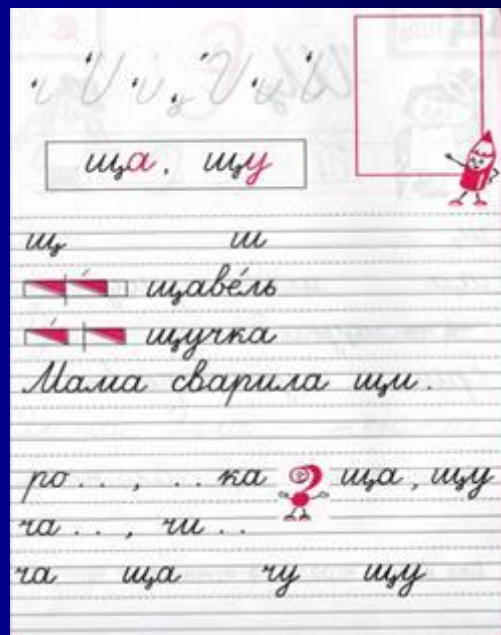 ща, щу
щ ш
щаве́ль
щучка
Мама сварила щи.
ро . . , . . ка ? ща, щу
ча . . , чи . .
ча ща чу щу